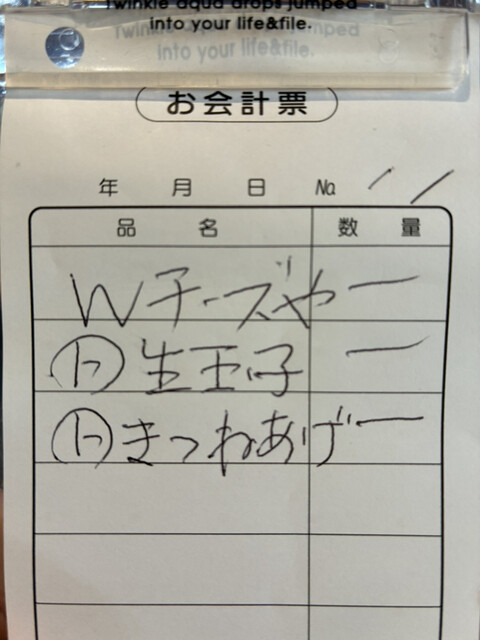 Twinkle aqua drops jumped
into your life&file.
お会計票
年 月 日 No. 11
品名 数量
Wチーズや 一
ト 生玉子 一
ト きつねあげ 一